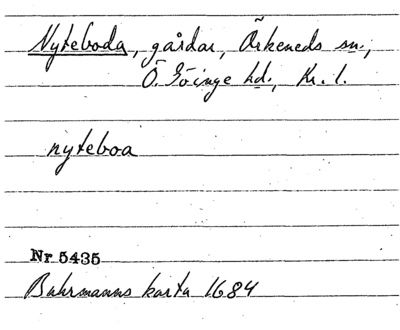 Nyteboda, gårdar, Örkeneds sn.,
Ö. Göinge hd., Kr. l.
nyteboa
Nr 5435
Buhrmanns karta 1684